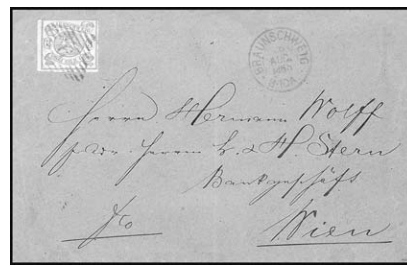 BRAUNSCHWEIG
Herrn Hermann Wolff
Herrn & H. Stern
Bankgeschäft
Wien
fco